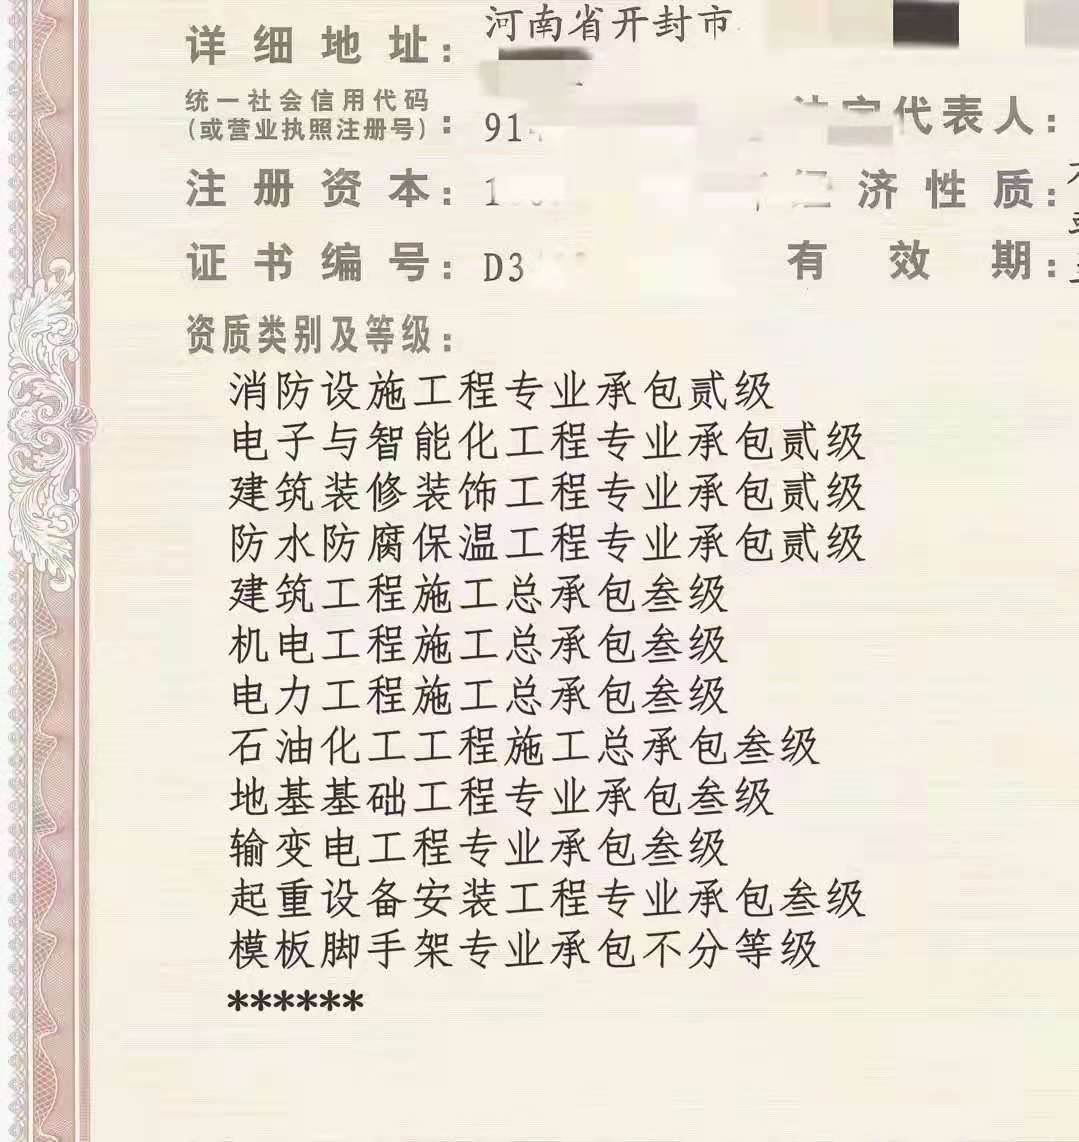 详细地址：河南省开封市
统一社会信用代码
（或营业执照注册号）：91
代表人：
注册资本：1
济性质：
证书编号：D3
有效期：
资质类别及等级：
消防设施工程专业承包贰级
电子与智能化工程专业承包贰级
建筑装修装饰工程专业承包贰级
防水防腐保温工程专业承包贰级
建筑工程施工总承包叁级
机电工程施工总承包叁级
电力工程施工总承包叁级
石油化工工程施工总承包叁级
地基基础工程专业承包叁级
输变电工程专业承包叁级
起重设备安装工程专业承包叁级
模板脚手架专业承包不分等级
******